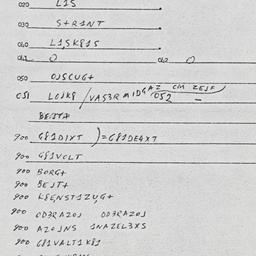 020 L1S
030 S+R1NT
040 L1SK81S
041 0 042 0
050 OJSCUG+
051 LOJK8 / VAS3RMIDGAZ CM ZEJF
052 -
BEJT+
900 G81DIXT ) = G81DE4XT
900 G81VCLT
900 BORG+
900 BEJT+
900 K8ENST1ZUG+
900 OD3RAZOJ OD3RAZOJ
900 AZOJNS 1NAZEL3XS
900 G81VALT1K81